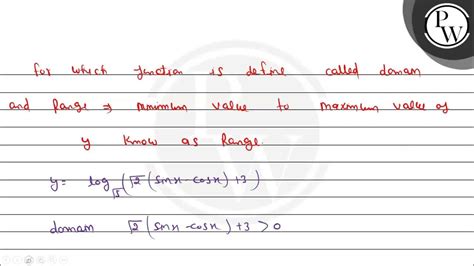 PW
for which function is define called domain
and Range ⇒ minimum value to maximum value of
y know as Range.
y = log_√5 (√2 (sinx - cosx) + 3)
domain √2 (sinx - cosx) + 3 > 0